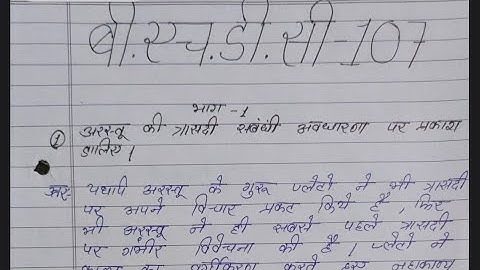 बी.एच.डी.सी-107
भाग -1
① अरस्तू की त्रासदी संबंधी अवधारणा पर प्रकाश
डालिए।
यद्यपि अरस्तू के गुरू प्लेटो ने भी त्रासदी
पर अपने विचार प्रकट किये हैं, फिर
भी अरस्तू ने ही सबसे पहले त्रासदी
पर गंभीर विवेचना की है। प्लेटो ने